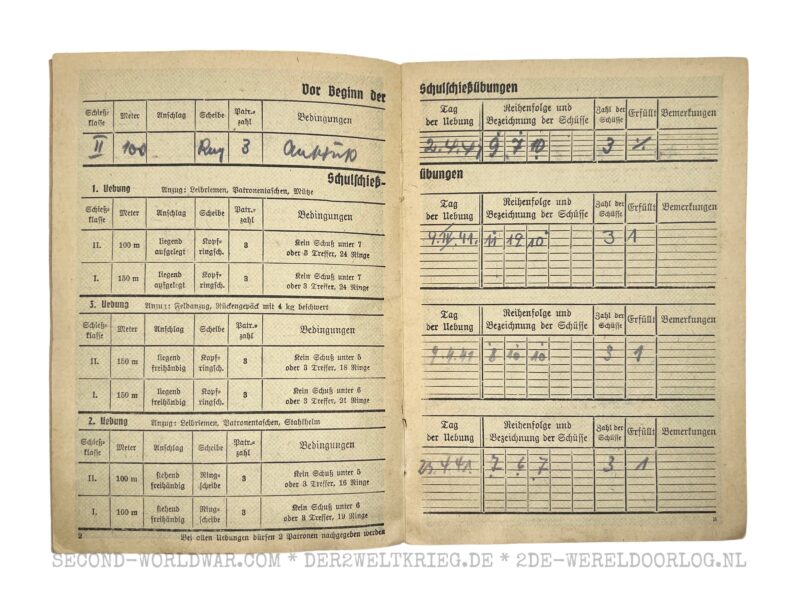 Vor Beginn der
Schieß-klasse Meter Anschlag Scheibe Patr.-zahl Bedingungen
II 100 3
Schulschieß-
1. Uebung Anzug: Leibriemen, Patronentaschen, Mütze
Schieß-klasse Meter Anschlag Scheibe Patr.-zahl Bedingungen
II. 100 m liegend aufgelegt Kopf-ringsch. 3 Kein Schuß unter 7 oder 3 Treffer, 24 Ringe
I. 150 m liegend aufgelegt Kopf-ringsch. 3 Kein Schuß unter 7 oder 3 Treffer, 24 Ringe
3. Uebung Anzug: Feldanzug, Rückengepäck mit 4 kg beschwert
Schieß-klasse Meter Anschlag Scheibe Patr.-zahl Bedingungen
II. 150 m liegend freihändig Kopf-ringsch. 3 Kein Schuß unter 5 oder 3 Treffer, 18 Ringe
I. 150 m liegend freihändig Kopf-ringsch. 3 Kein Schuß unter 6 oder 3 Treffer, 21 Ringe
2. Uebung Anzug: Leibriemen, Patronentaschen, Stahlhelm
Schieß-klasse Meter Anschlag Scheibe Patr.-zahl Bedingungen
II. 100 m stehend freihändig Ring-scheibe 3 Kein Schuß unter 5 oder 3 Treffer, 16 Ringe
I. 100 m stehend freihändig Ring-scheibe 3 Kein Schuß unter 6 oder 3 Treffer, 19 Ringe
2 Bei allen Uebungen dürfen 2 Patronen nachgegeben werden
Schulschießübungen
Tag der Uebung Reihenfolge und Bezeichnung der Schüsse Zahl der Schüsse Erfüllt Bemerkungen
2.4.41 9 7 10 3
übungen
Tag der Uebung Reihenfolge und Bezeichnung der Schüsse Zahl der Schüsse Erfüllt Bemerkungen
9.IV.41. 11 12 10 3 1
Tag der Uebung Reihenfolge und Bezeichnung der Schüsse Zahl der Schüsse Erfüllt Bemerkungen
9.4.41 8 10 10 3 1
Tag der Uebung Reihenfolge und Bezeichnung der Schüsse Zahl der Schüsse Erfüllt Bemerkungen
23.4.41. 7 6 7 3 1
SECOND-WORLDWAR.COM * DER2WELTKRIEG.DE * 2DE-WERELDOORLOG.NL